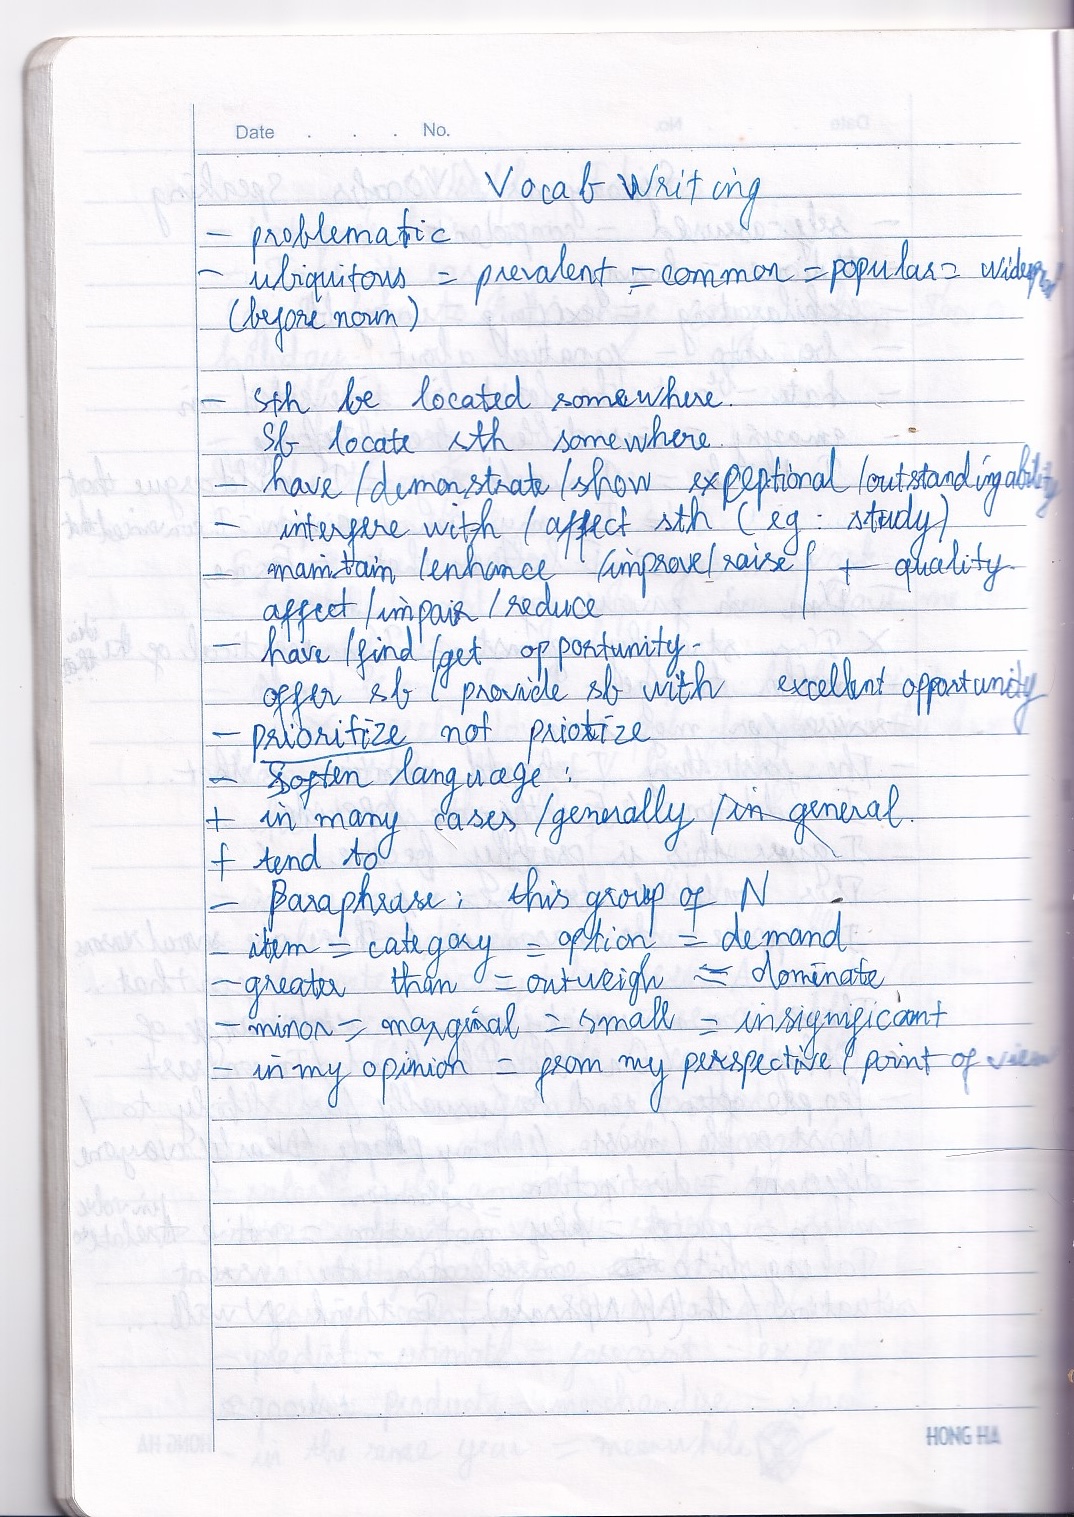 Date . . . No.
Vocab Writing
- problematic
- ubiquitous = prevalent = common = popular =
(before noun)
- sth be located somewhere.
sb locate sth somewhere.
- have / demonstrate / show exceptional / outstanding ability
- interfere with / affect sth (eg: study)
- maintain / enhance / improve / raise | + quality
affect / impair / reduce
- have / find / get opportunity.
offer sb / provide sb with excellent opportunity
- prioritize not priotize
- Soften language:
+ in many cases / generally / in general.
+ tend to
- Paraphrase: this group of N
- item = category = option = demand
- greater than = outweigh = dominate
- minor = marginal = small = insignificant
- in my opinion = from my perspective / point of view
HONG HA